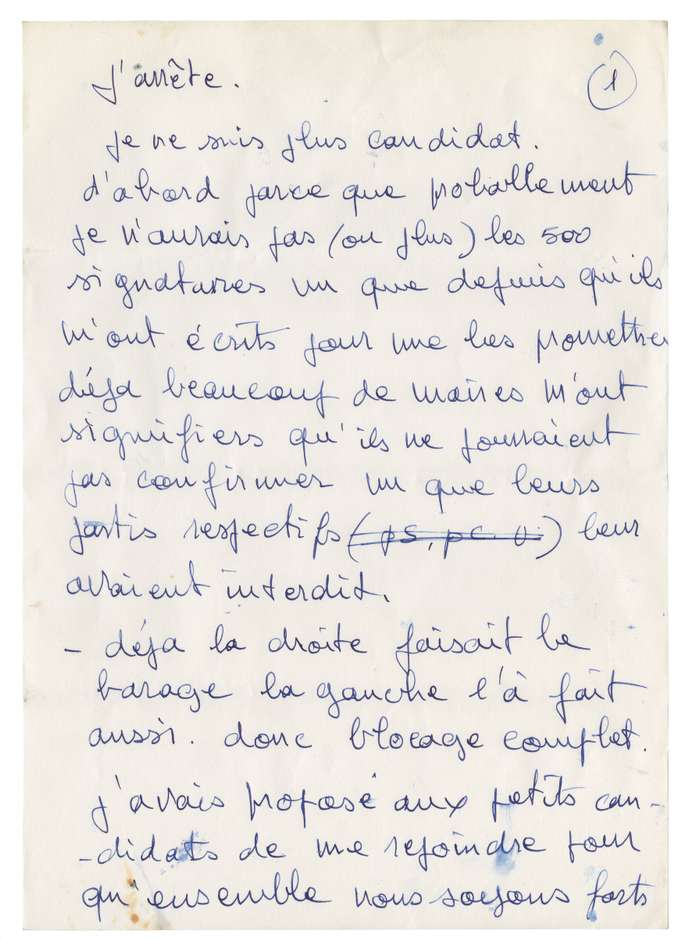 1
j'arrête.
je ne suis plus candidat.
d'abord parce que probablement
je n'aurais pas (ou plus) les 500
signatures vu que depuis qu'ils
m'ont écrits pour me les promettre
déja beaucoup de maires m'ont
signifiers qu'ils ne pourraient
pas confirmer vu que leurs
partis respectifs (ps, pc. u.) leur
avaient interdit.
- déja la droite faisait le
barage la gauche l'à fait
aussi. donc blocage complet.
j'avais proposé aux petits can-
-didats de me rejoindre pour
qu'ensemble nous soyons forts